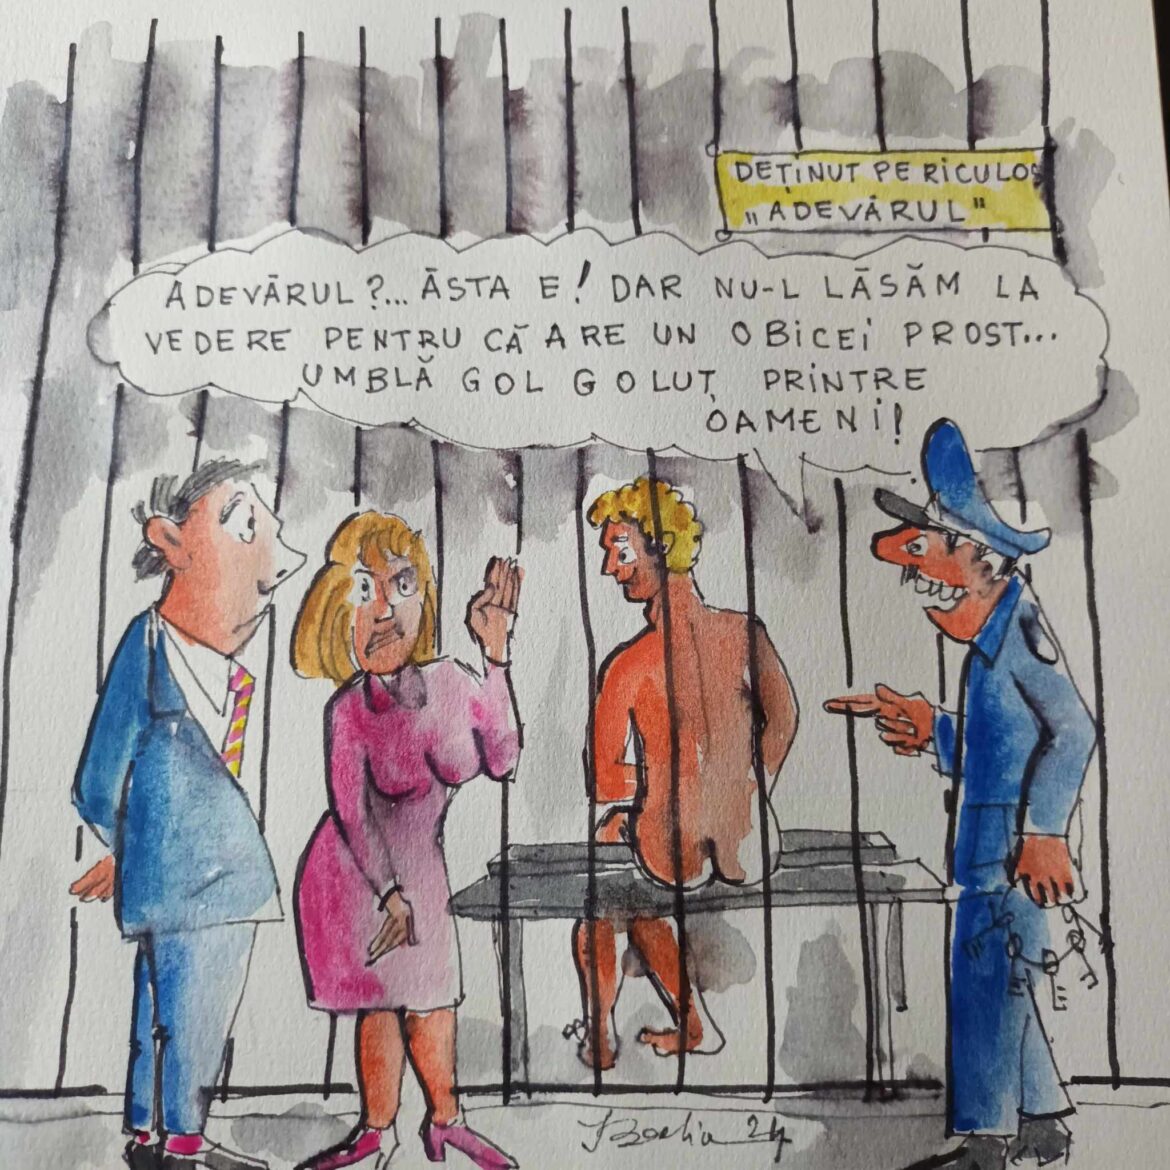 DEȚINUT PERICULOS
„ADEVĂRUL"
ADEVĂRUL?... ĂSTA E! DAR NU-L LĂSĂM LA
VEDERE PENTRU CĂ ARE UN OBICEI PROST...
UMBLĂ GOL GOLUȚ PRINTRE
OAMENI!
24